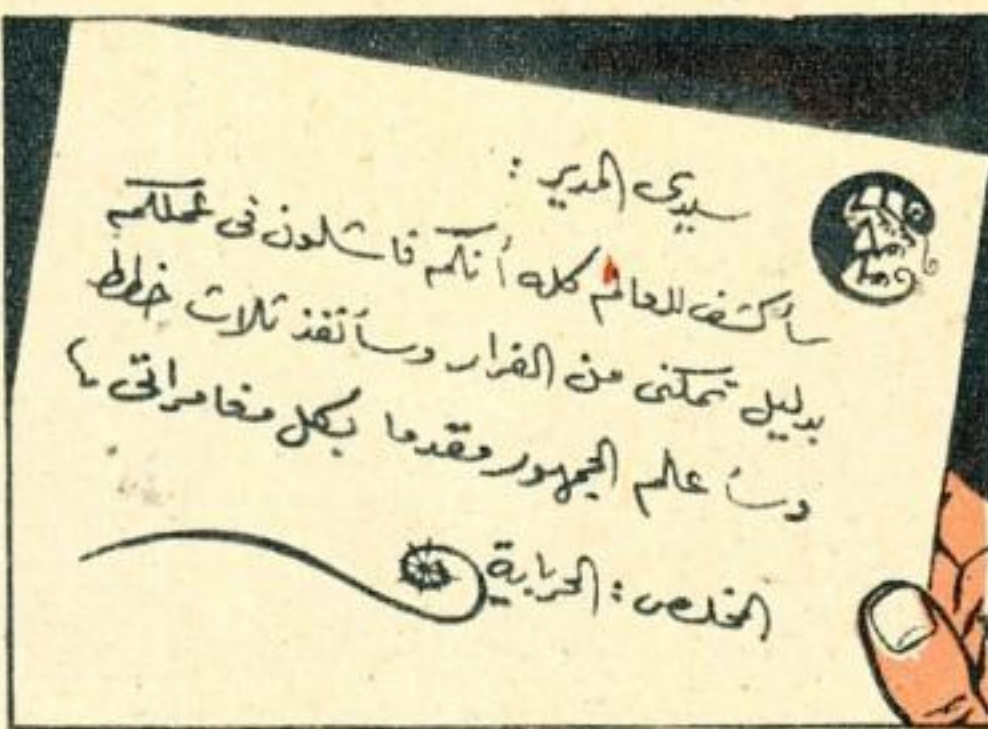 سيدى المدير :
سأكشف للعالم كله أنكم فاشلون فى عملكم
بدليل تمكنى من الفرار وسأنفذ ثلاث خطط
وسأعلم الجمهور مقدما بكل مغامراتى
المخلص : الحرباية